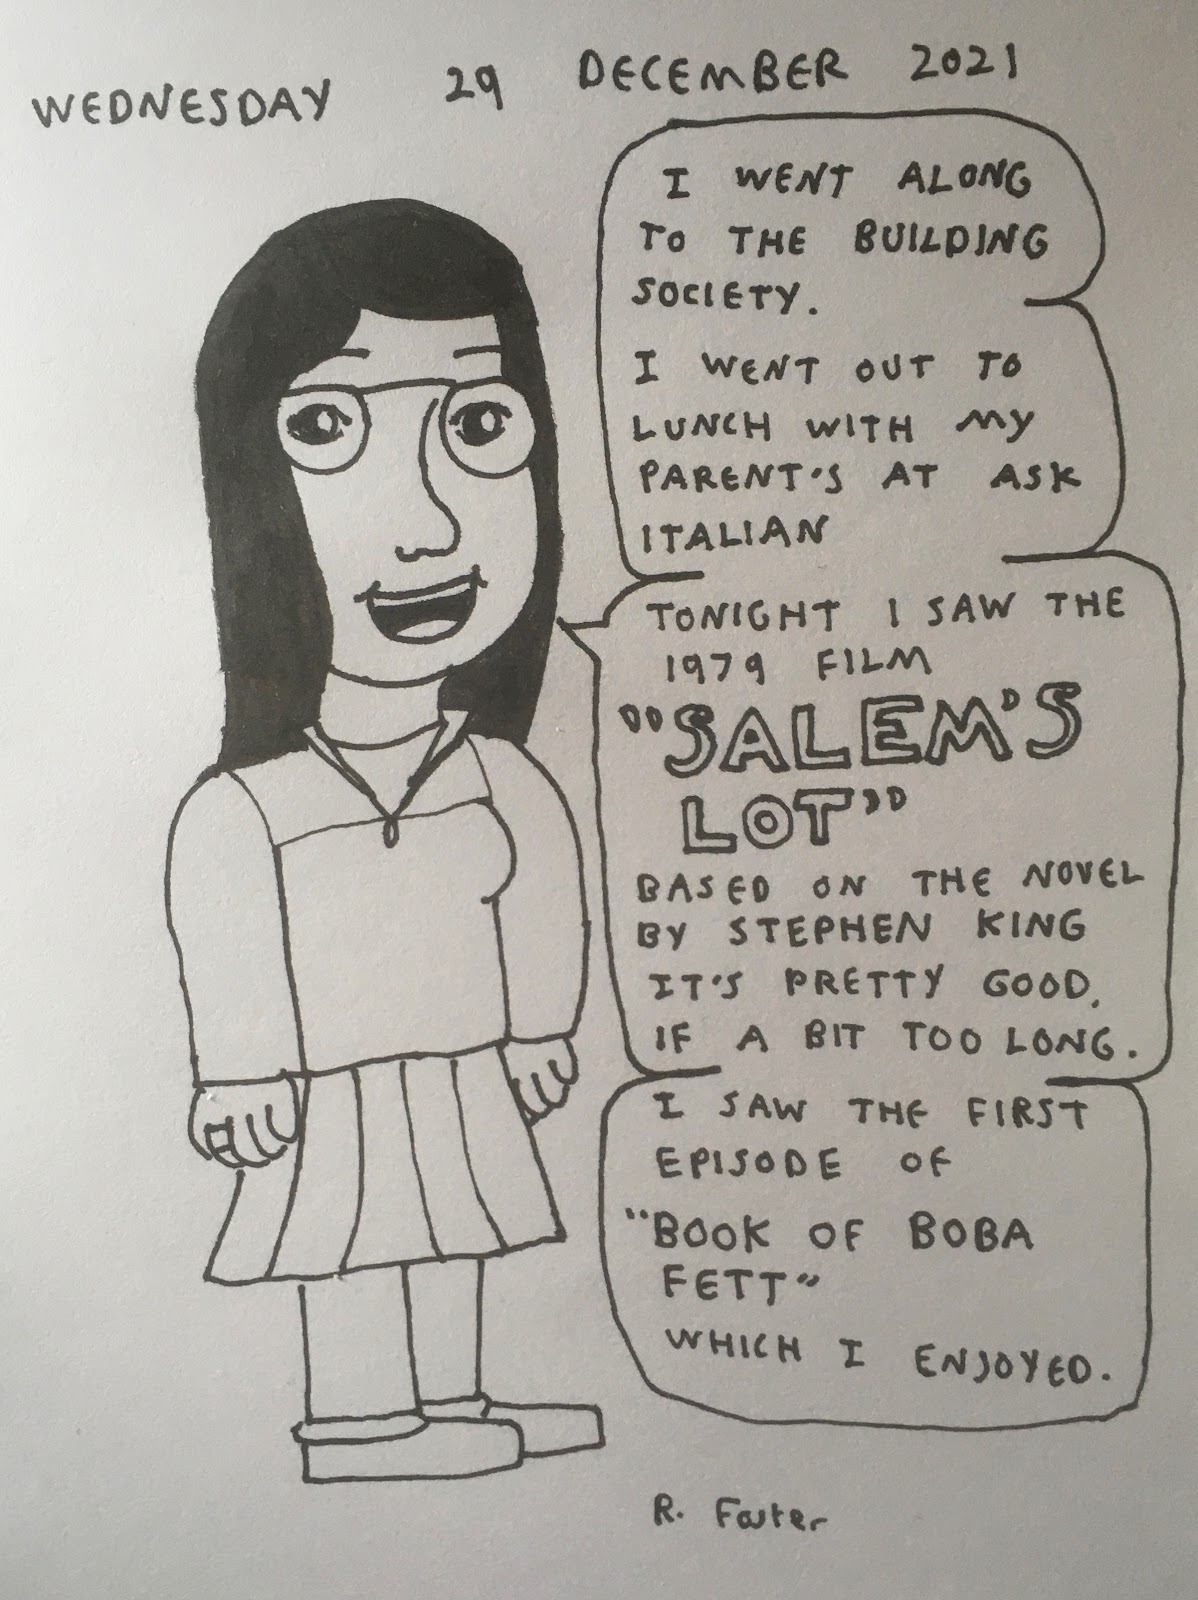 WEDNESDAY 29 DECEMBER 2021
I WENT ALONG
TO THE BUILDING
SOCIETY.
I WENT OUT TO
LUNCH WITH MY
PARENT'S AT ASK
ITALIAN
TONIGHT I SAW THE
1979 FILM
"SALEM'S
LOT"
BASED ON THE NOVEL
BY STEPHEN KING
IT'S PRETTY GOOD,
IF A BIT TOO LONG.
I SAW THE FIRST
EPISODE OF
"BOOK OF BOBA
FETT"
WHICH I ENJOYED.
R. Foster